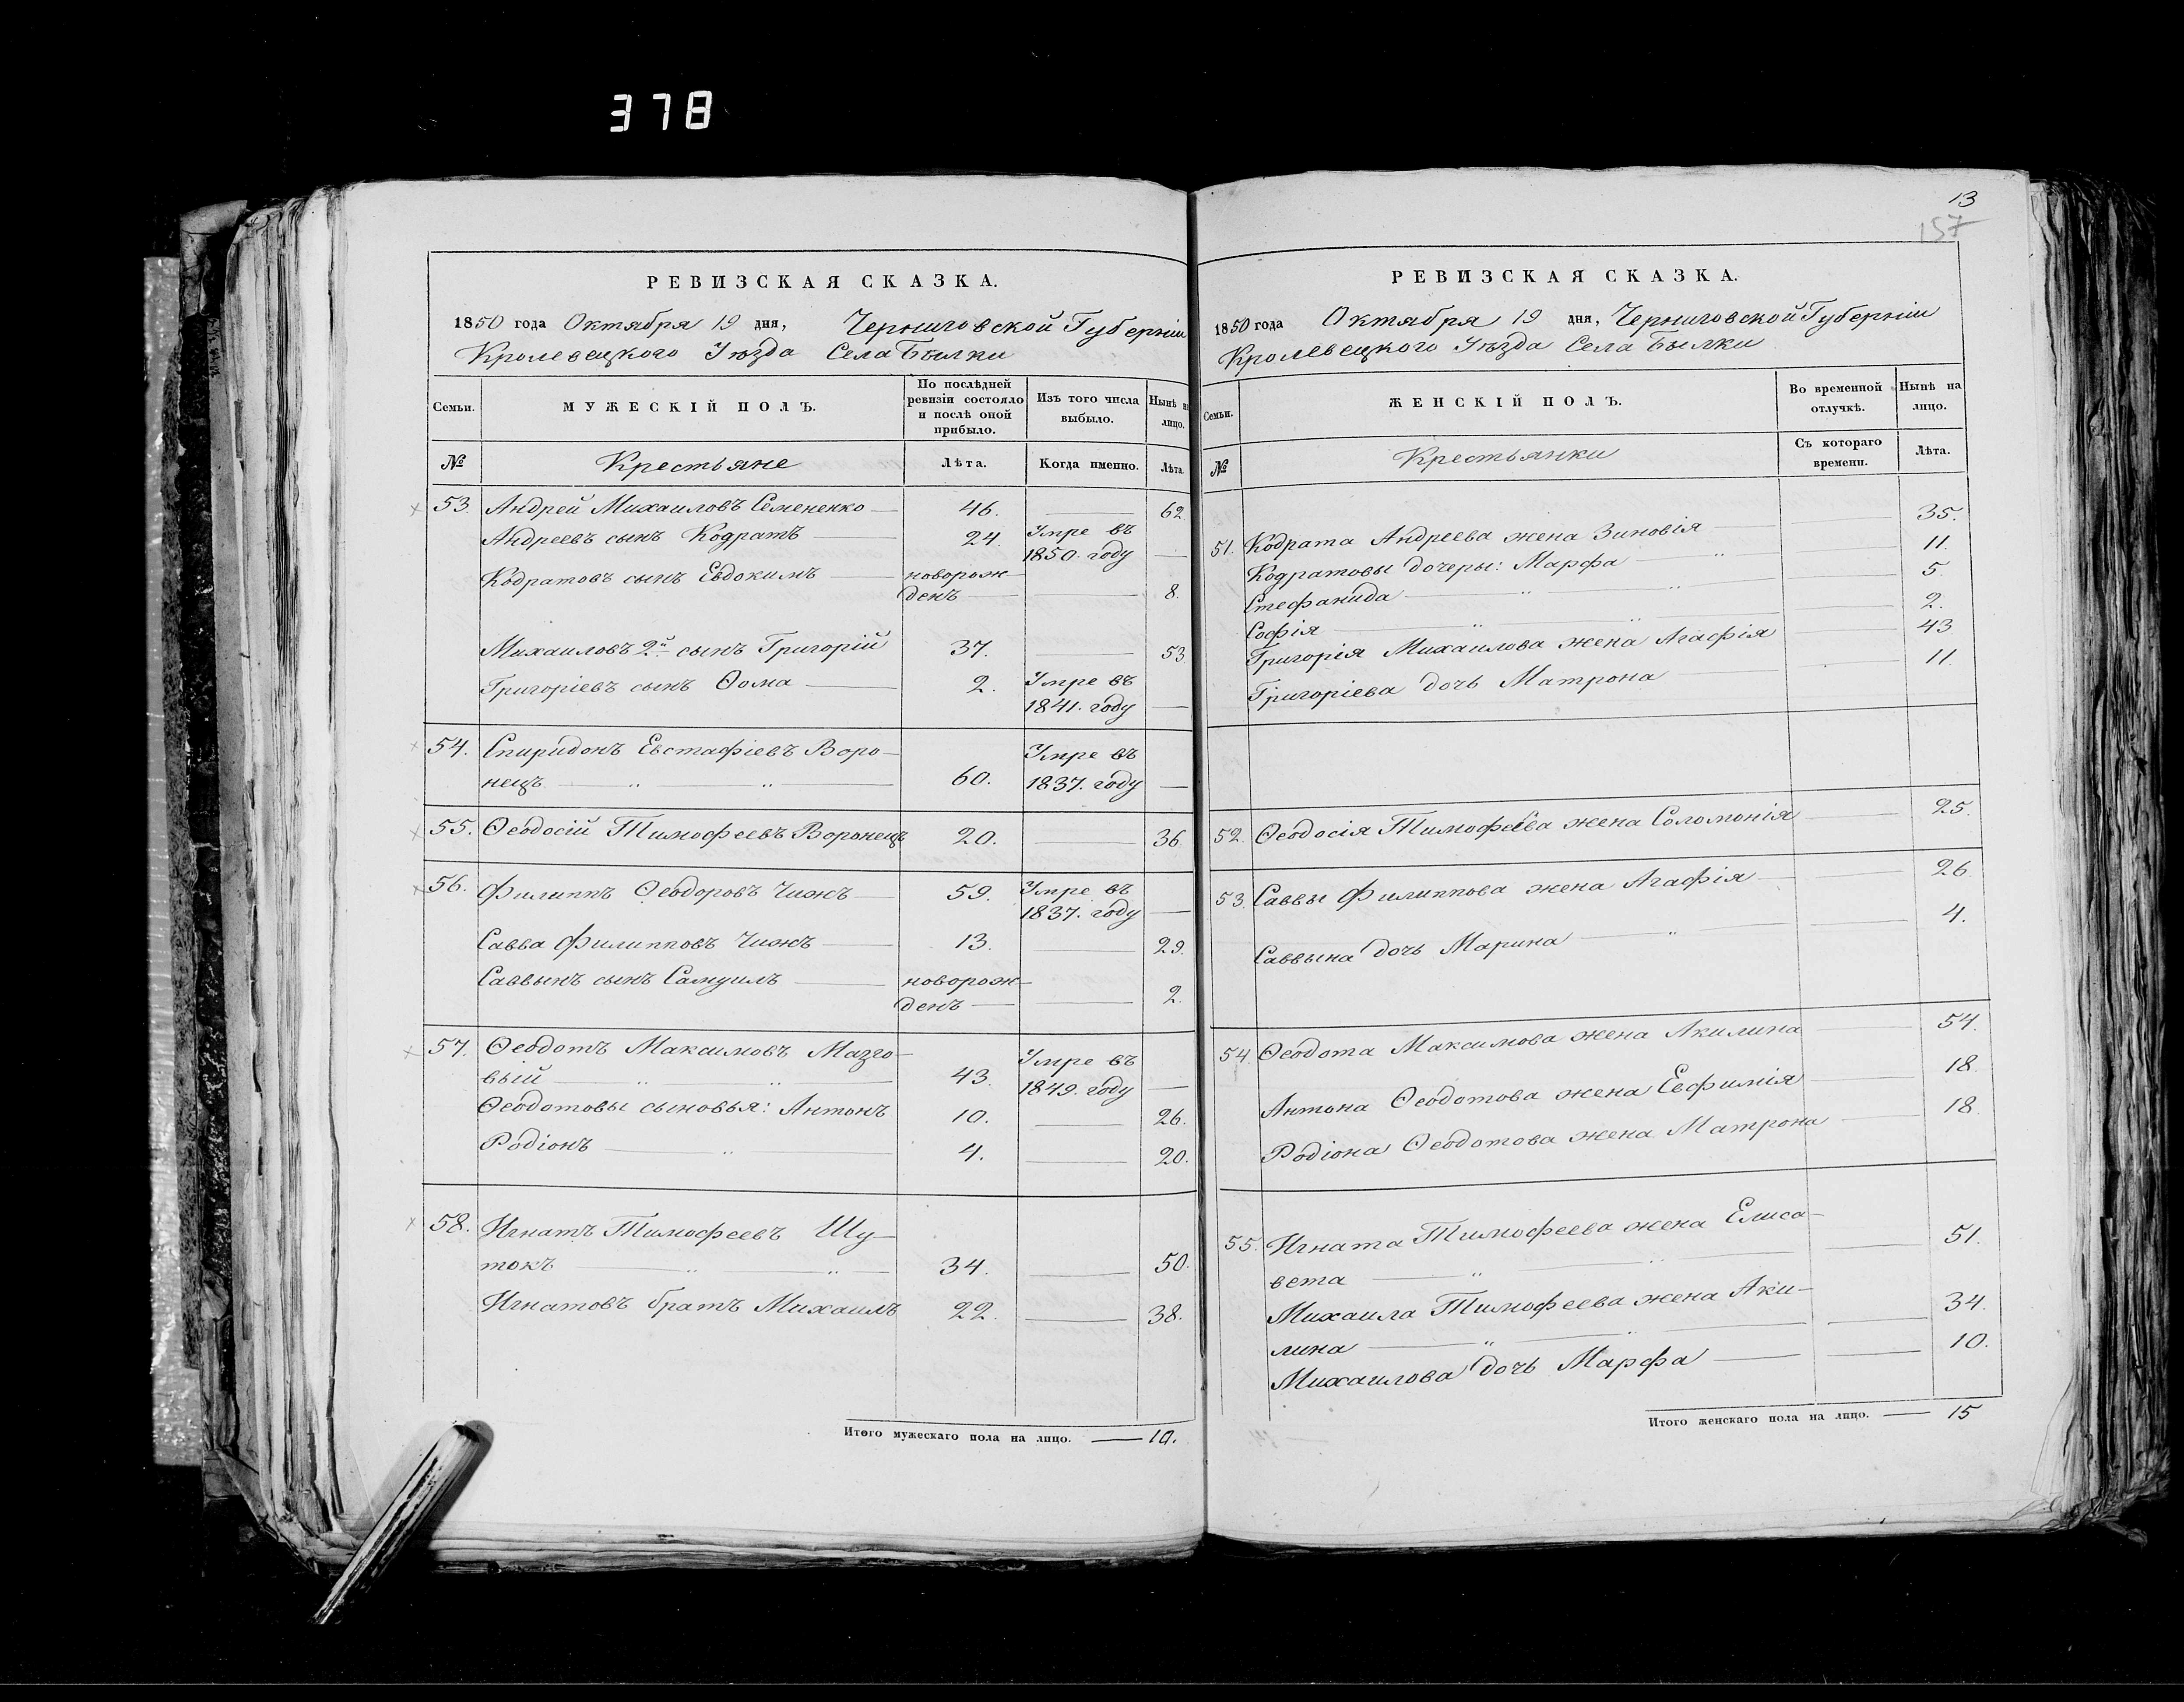 378
РЕВИЗСКАЯ СКАЗКА.
1850 года Октября 19 дня, Черниговской Губерніи
Кролевецкого Уѣзда Села Былки
Семьи. МУЖЕСКІЙ ПОЛЪ. По послѣдней ревизіи состояло и послѣ оной прибыло. Изъ того числа выбыло. Нынѣ на лицо.
№ Крестьяне Лѣта. Когда именно. Лѣта.
53 Андрей Михаиловъ Семененко 46. 62
Андреевъ сынъ Кодратъ 24. Умре въ
1850. году
Кодратовъ сынъ Евдокимъ новорож-
денъ 8.
Михаиловъ 2й сынъ Григорій 37. 53
Григоріевъ сынъ Ѳома 2. Умре въ
1841. году
54. Спиридонъ Евстафіевъ Воро- Умре въ
нецъ 60. 1837. году
55. Ѳеодосій Тимофеевъ Воронецъ 20. 36
56. Филиппъ Ѳеодоровъ Чижъ 59. Умре въ
1837. году
Савва Филипповъ Чижъ 13. 29.
Саввынъ сынъ Самуилъ новорож-
денъ 2.
57. Ѳеодотъ Максимовъ Мазго- Умре въ
вый 43. 1849. году
Ѳеодотовы сыновья: Антонъ 10. 26.
Родіонъ 4. 20.
58. Игнатъ Тимофеевъ Шу-
токъ 34. 50.
Игнатовъ братъ Михаилъ 22. 38.
Итого мужескаго пола на лицо. 10.
13
157
РЕВИЗСКАЯ СКАЗКА.
1850 года Октября 19 дня, Черниговской Губерніи
Кролевецкого Уѣзда Села Былки
Семьи. ЖЕНСКІЙ ПОЛЪ. Во временной отлучкѣ. Нынѣ на лицо.
№ Крестьянки Съ котораго времени. Лѣта.
51. Кодрата Андреева жена Зиновія 35.
Кодратовы дочеры: Марфа 11.
Стефанида 5.
Софія 2.
Григорія Михаилова жена Агафія 43
Григоріева дочь Матрона 11.
52. Ѳеодосія Тимофеева жена Соломонія 25.
53. Саввы Филиппова жена Агафія 26
Саввына дочь Марина 4.
54 Ѳеодота Максимова жена Акилина 54.
Антона Ѳеодотова жена Евфимія 18.
Родіона Ѳеодотова жена Матрона 18
55. Игната Тимофеева жена Елиса-
вета 51.
Михаила Тимофеева жена Аки-
лина 34.
Михаилова дочь Марфа 10.
Итого женскаго пола на лицо. 15